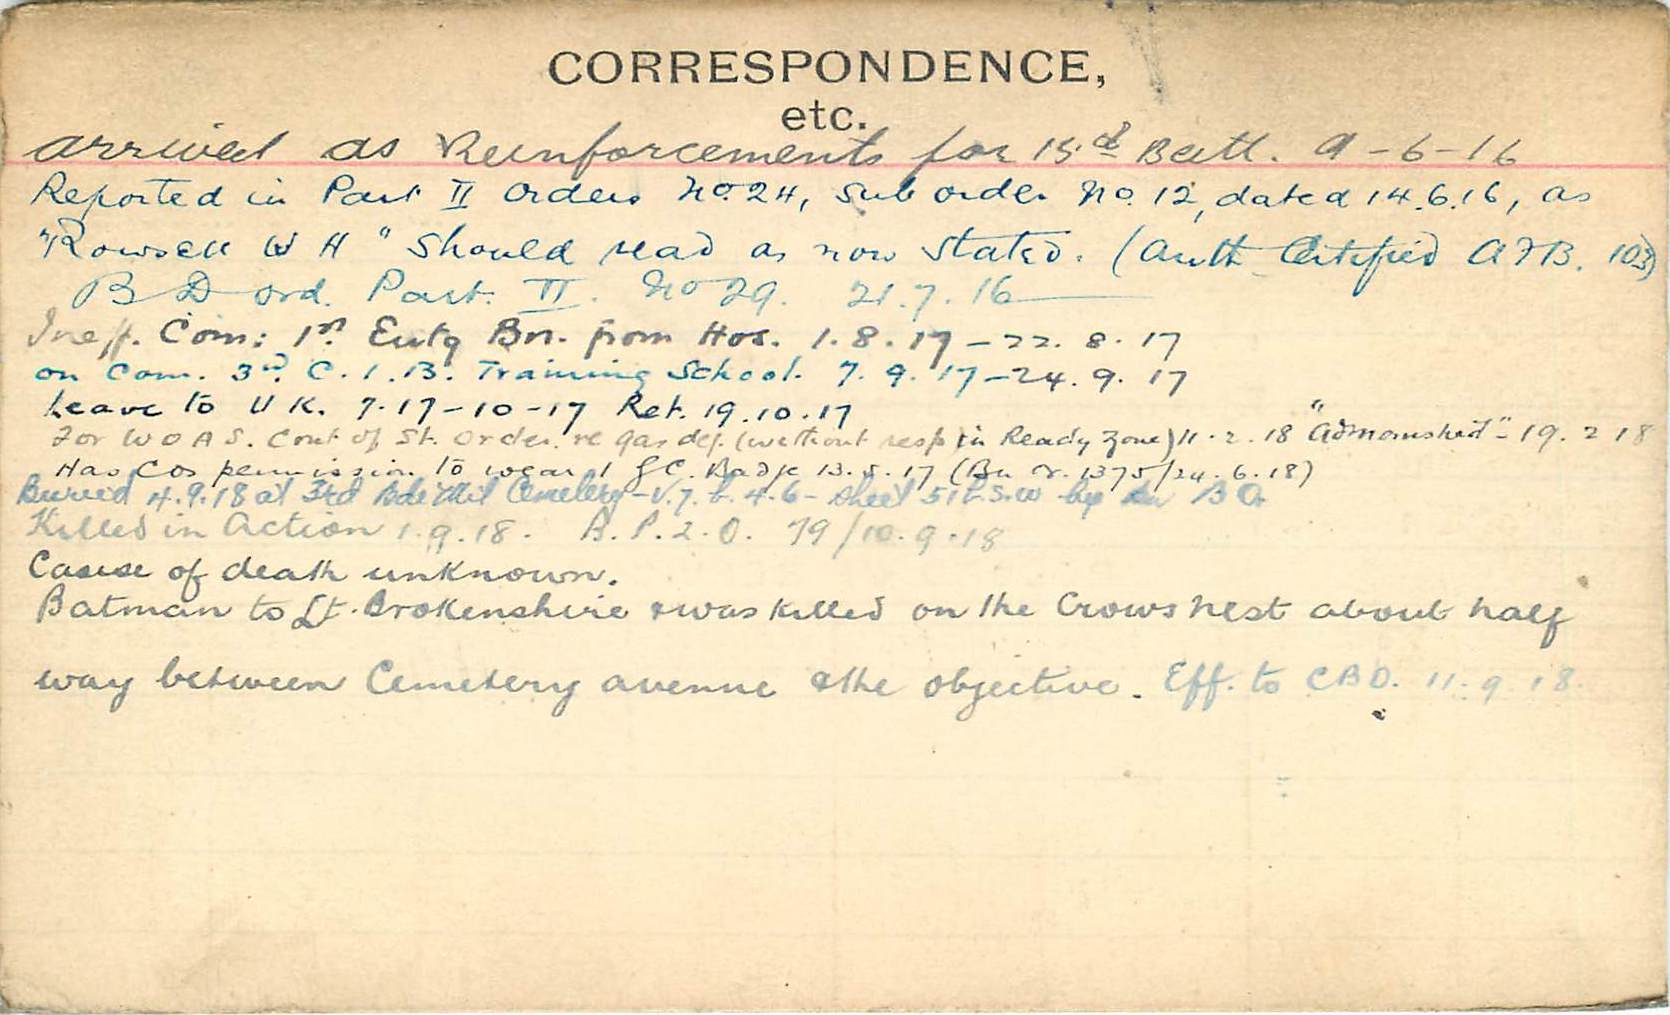 CORRESPONDENCE,
etc.
arrived as Reinforcements for 15th Batt. 9-6-16
Reported in Part II Orders No 24, sub order No. 12, dated 14.6.16, as
"Rowsell W H" should read as now stated. (Auth Certified A.F.B. 103)
B D ord. Part. II. No 29. 21.7.16
Ineff. Com: 1st Entg Bn. from Hos. 1.8.17-22.8.17
on Com. 3rd. C.I.B. Training School. 7.9.17-24.9.17
Leave to UK. 7-17-10-17 Ret. 19.10.17
For W O A S. Cont of St. Order. re gas def. (without resp in Ready Zone) 11.2.18 "Admonished"-19.2 18
Has COs permission to wear 1 G.C. Badge 13.5.17 (Bn r. 1375/24.6.18)
Buried 4.9.18 at 3rd Bde Mil Cemetery - V.7. b. 4.6 - Sheet 51 S.W by B O.
Killed in Action 1.9.18. B.P.2.O. 79/10.9.18
Cause of death unknown.
Batman to Lt. Brokenshire & was killed on the Crows nest about half
way between Cemetery avenue & the objective. Eff. to CBD. 11.9.18.